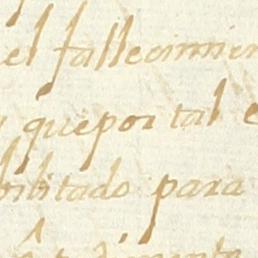 el fallecimien
y que por tal e
bilitado para